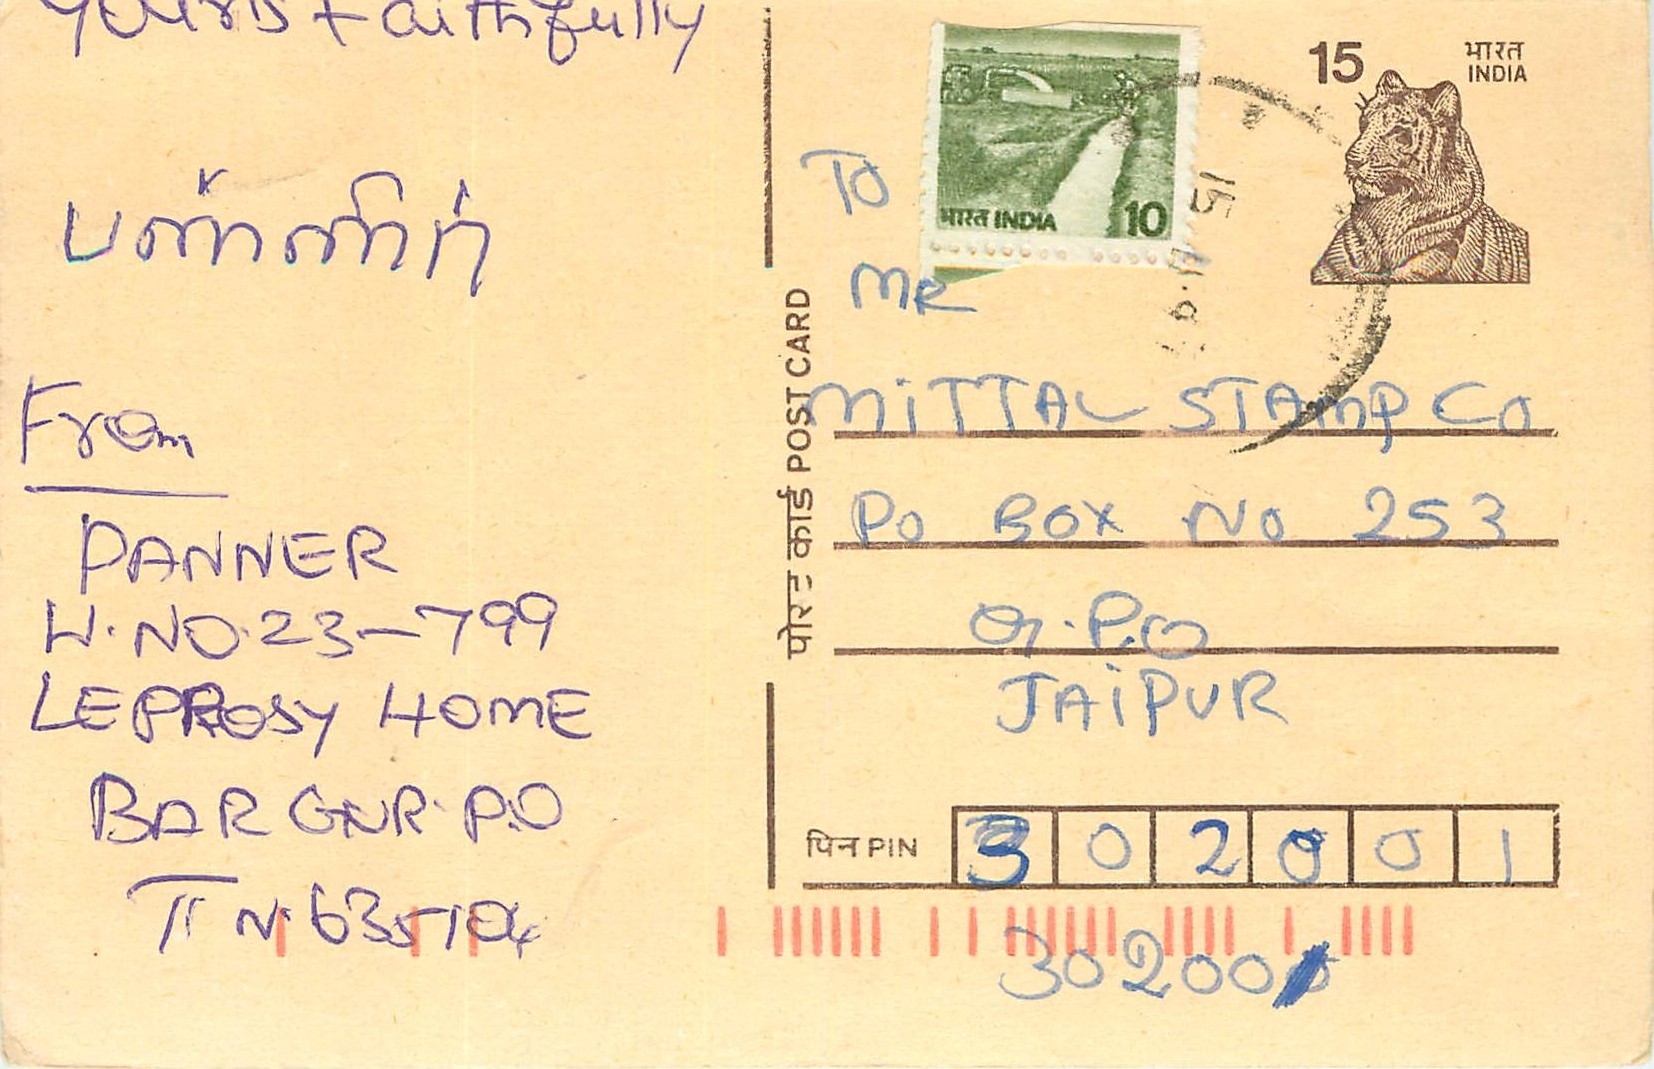 yours faithfully
பன்னீர்
From
PANNER
W.NO.23-799
LEPROSY HOME
BARGNR.P.O
TN.635104
भारत INDIA 10
15
भारत
INDIA
पोस्ट कार्ड POST CARD
TO
MR
MiTTAL STAmP Co
Po BOX No 253
G.P.O
JAiPUR
पिन PIN 302001
302001